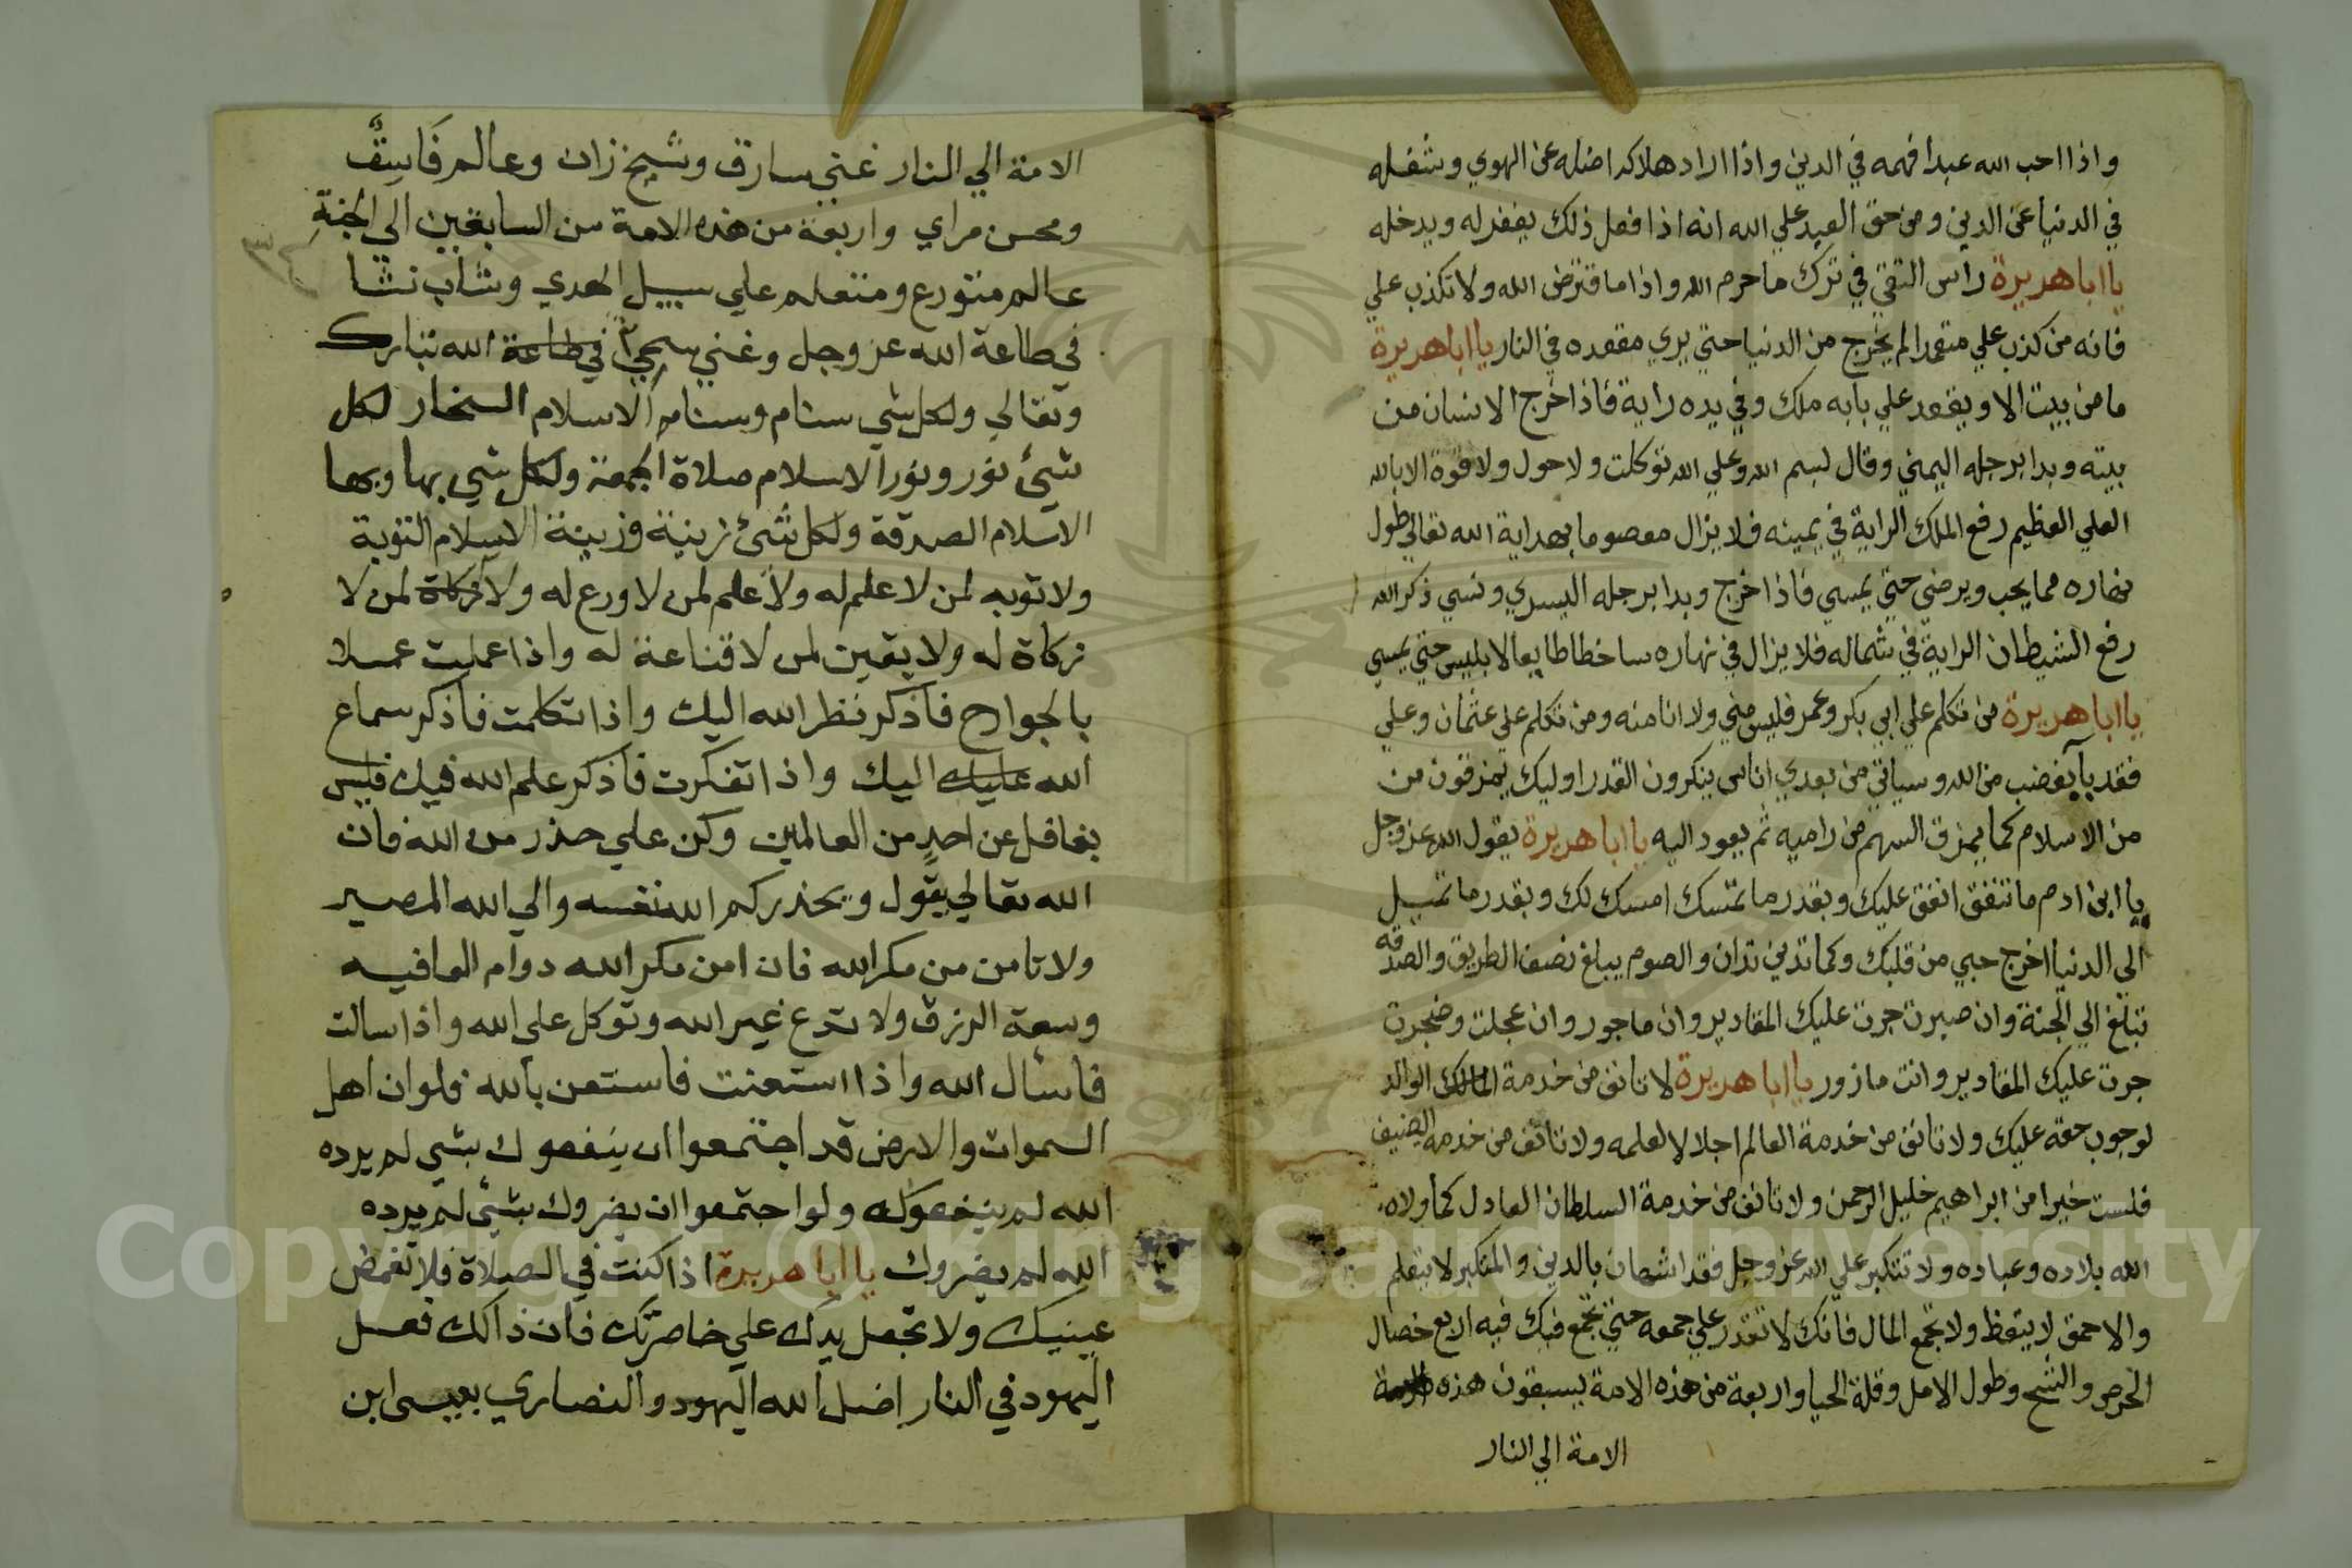 واذا احب الله عبدا فهمه في الدين واذا اراد هلاكه اضله عن الهوي وشغله
في الدنيا عن الدين ومن حق العبد علي الله انه اذا فعل ذلك يغفر له ويدخله
يا ابا هريرة راس التقي في ترك ما حرم الله واذا ما قترض الله ولا تكذب علي
فانه من كذب علي متعمدا لم يخرج من الدنيا حتي يري مقعده في النار يا ابا هريرة
ما من بيت الا ويقعد علي بابه ملك وفي يده راية فاذا خرج الانسان من
بيته وبدا برجله اليمني وقال بسم الله وعلي الله توكلت ولا حول ولا قوة الا بالله
العلي العظيم رفع الملك الراية في يمينه فلا يزال معصوما بهداية الله تعالي طول
نهاره مما يحب ويرضي حتي يمسي فاذا خرج وبدا برجله اليسري ونسي ذكر الله
رفع الشيطان الراية في شماله فلا يزال في نهاره ساخطا طايعا لابليس حتي يمسي
يا ابا هريرة من تكلم علي ابي بكر وعمر فليس مني ولا انا منه ومن تكلم علي عثمان وعلي
فقد بآ بغضب من الله وسياتي من بعدي اناس ينكرون القدر اوليك يمزقون من
من الاسلام كما يمزق السهم من راميه ثم يعود اليه يا ابا هريرة يقول الله عز وجل
يا ابن ادم ما تنفق انفق عليك وبقدر ما تمسك امسك لك وبقدر ما تميل
الي الدنيا اخرج حبي من قلبك وكما تدين تدان والصوم يبلغ نصف الطريق والصدقه
تبلغ الي الجنة وان صبرت جرت عليك المقادير وان ماجور وان عجلت وضجرت
جرت عليك المقادير وانت مازور يا ابا هريرة لا تانف من خدمة الوالد
لوجوب حقه عليك ولا تانف من خدمة العالم اجلالا لعلمه ولا تانف من خدمه الضيف
فلست خيرا من ابراهيم خليل الرحمن ولا تانف من خدمة السلطان العادل كما ولاه
الله بلاده وعباده ولا تتكبر علي الله عز وجل فقد استهان بالدين والمتكبر لا يتعلم
والاحمق لا يتعظ ولا تجمع المال فانك لا تقدر علي جمعه حتي تجمع فيك فيه اربع خصال
الحرص والشح وطول الامل وقلة الحيا واربعة من هذه الامة يسبقون هذه
الامة الي النار
الامة الي النار غني سارق وشيخ زان وعالم فاسق
ومحسن مراي واربعة من هذه الامة من السابقين الي الجنة
عالم متورع ومتعلم علي سبيل الهدي وشاب نشا
في طاعة الله عز وجل وغني سخي في طاعة الله تبارك
وتعالي ولكل شي سنام وسنام الاسلام السخا لكل
شيئ نور ونور الاسلام صلاة الجمعة ولكل شي بها وبها
الاسلام الصدقة ولكل شئ زينة وزينة الاسلام التوبة
ولا توبه لمن لا علم له ولا علم لمن لا ورع له ولا زكاة لمن لا
زكاة له ولا يقين لمن لا قناعة له واذا عملت عملا
بالجوارح فاذكر نظر الله اليك واذا تكلمت فاذكر سماع
الله عليك اليك واذا تفكرت فاذكر علم الله فيك فليس
بغافل عن احد من العالمين وكن علي حذر من الله فان
الله تعالي يقول ويحذركم الله نفسه والي الله المصير
ولا تامن من مكر الله فان امن مكر الله دوام العافيه
وسعة الرزق ولا تدع غير الله وتوكل على الله واذا سالت
فاسأل الله واذا استعنت فاستعن بالله فلو ان اهل
السموات والارض قد اجتمعوا ان ينفعوك بشي لم يرده
الله لم ينفعوك ولو اجتمعوا ان يضروك بشئ لم يرده
الله لم يضروك يا ابا هريرة اذا كنت في الصلاة فلا تغمض
عينيك ولا تجعل يدك علي خاصرتك فان ذالك فعل
اليهود في النار اضل الله اليهود والنصاري بعيسى ابن
Copyright © King Saud University
1957